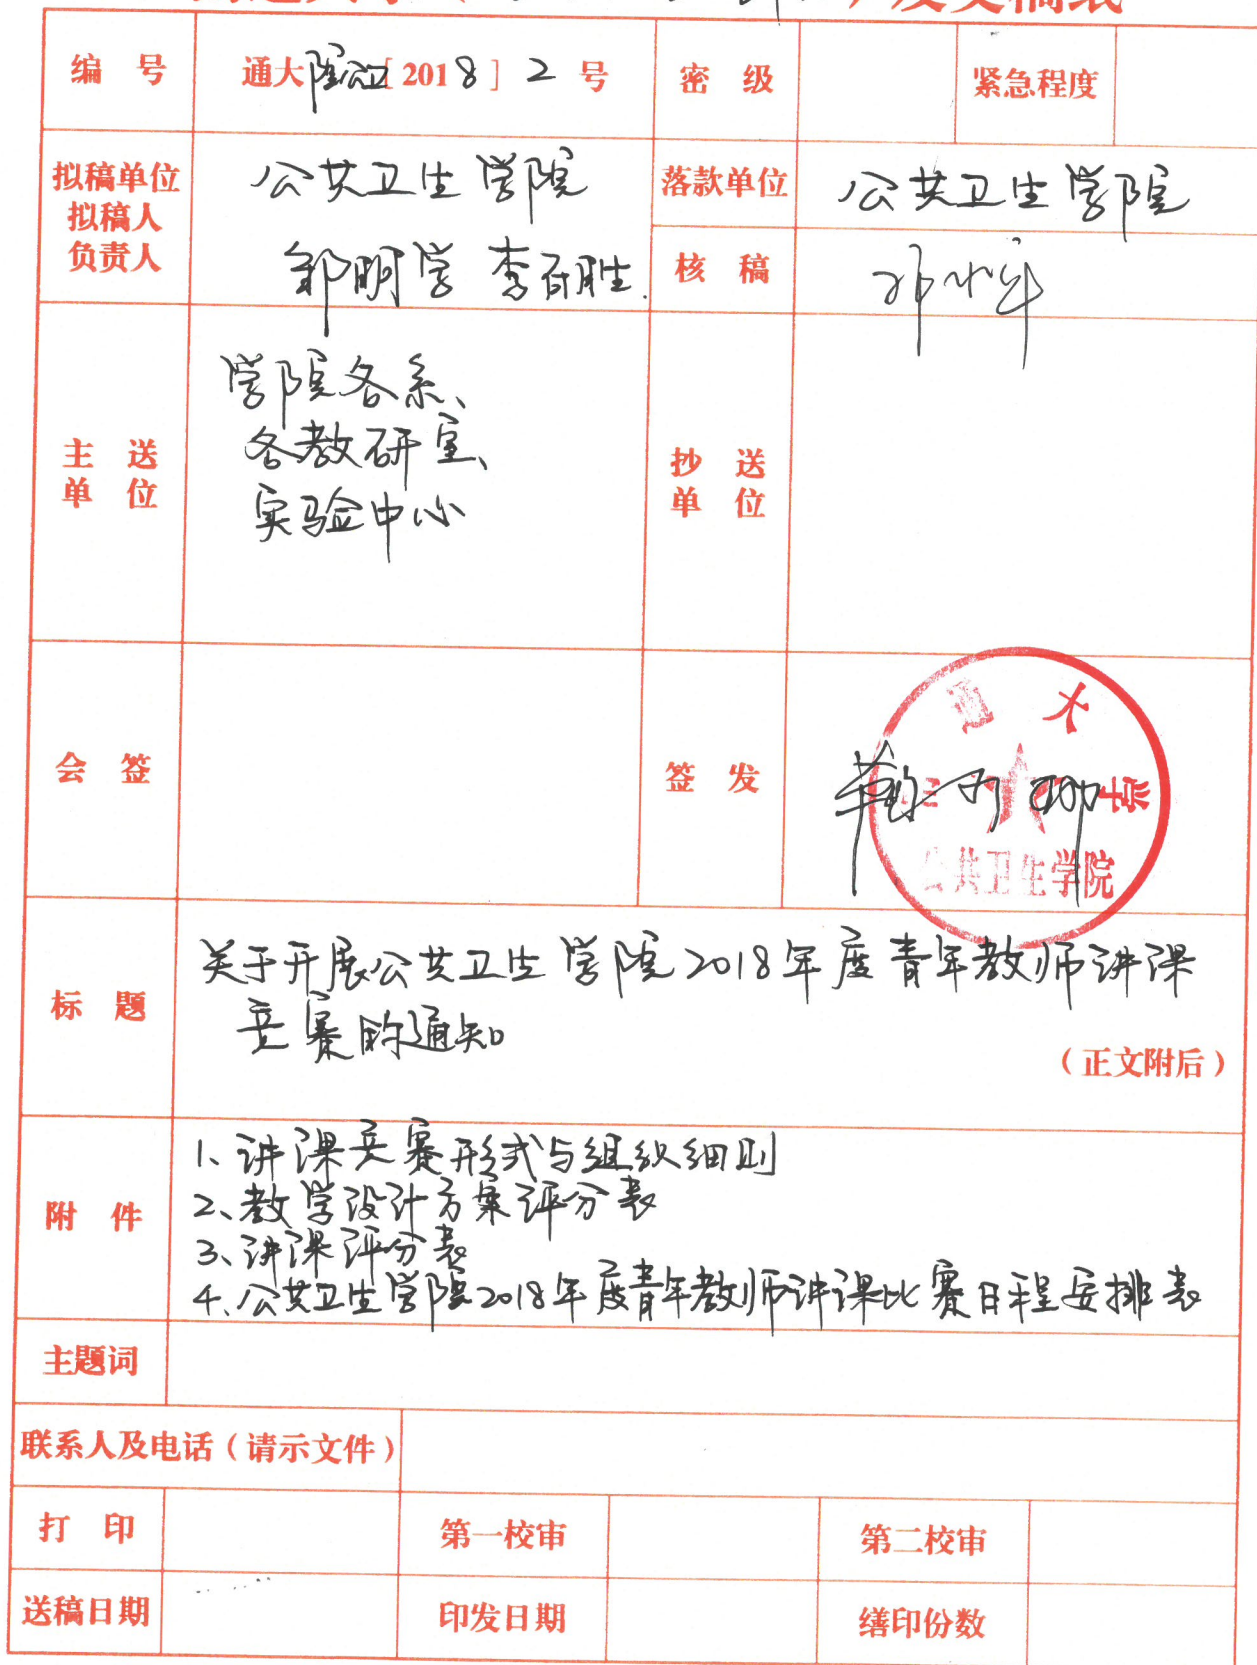 发文稿纸
编 号
通大 [2018] 2 号
密 级
紧急程度
拟稿单位
拟稿人
负责人
公共卫生学院
邹明学 李百胜
落款单位
公共卫生学院
核 稿
主 送
单 位
学院各系、
各教研室、
实验中心
抄 送
单 位
会 签
签 发
通大学
公共卫生学院
标 题
关于开展公共卫生学院2018年度青年教师讲课
竞赛的通知
（正文附后）
附 件
1、讲课竞赛形式与组织细则
2、教学设计方案评分表
3、讲课评分表
4、公共卫生学院2018年度青年教师讲课比赛日程安排表
主题词
联系人及电话（请示文件）
打 印
第一校审
第二校审
送稿日期
印发日期
缮印份数